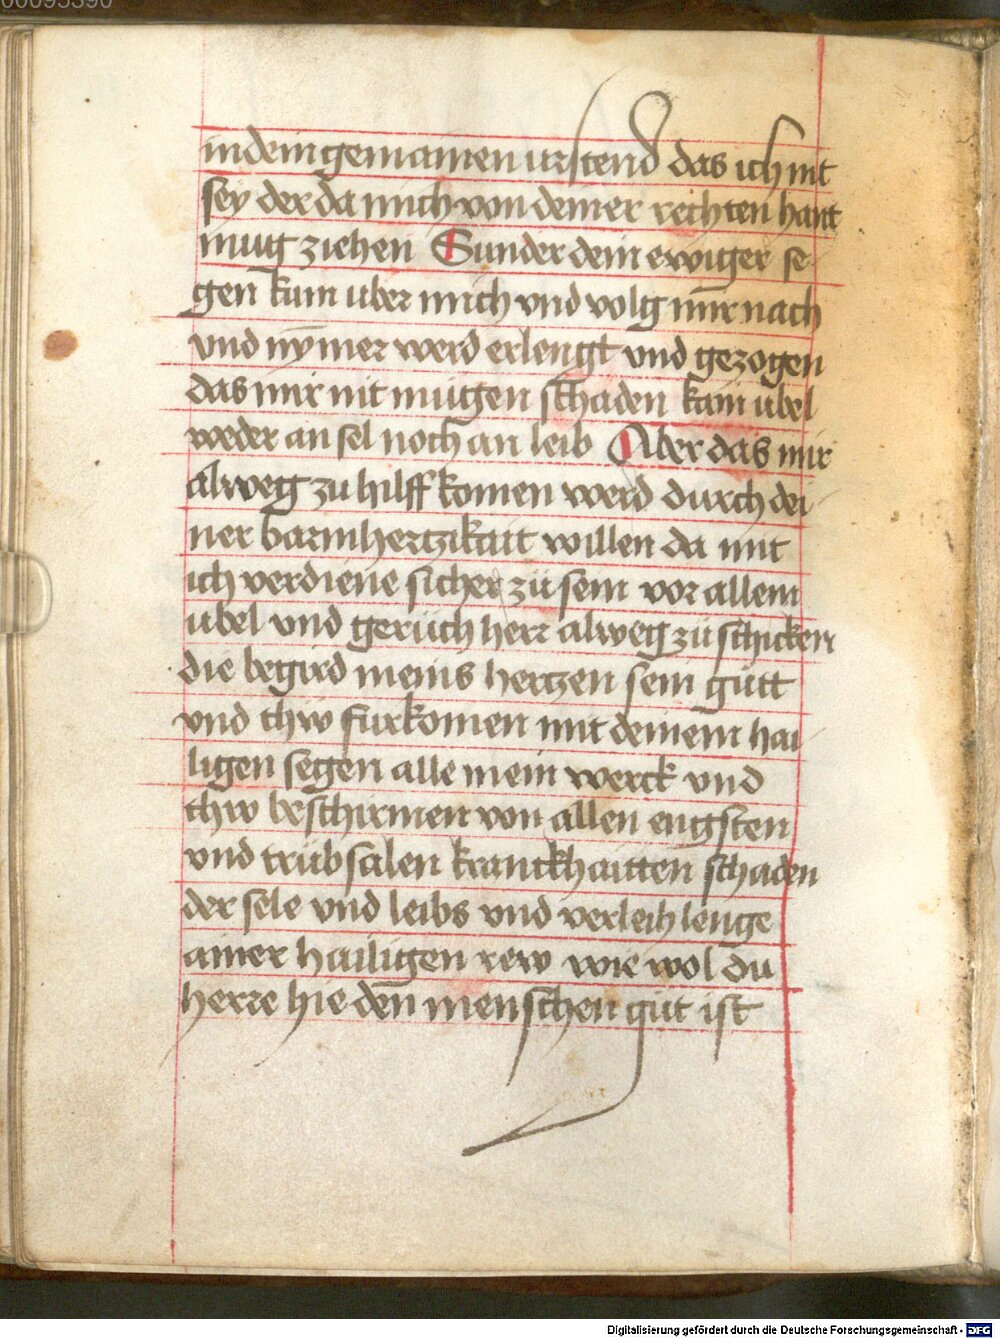 00095390
in dein gemainen urstend das ich nit
sey der da mich von deiner rechten hant
mug ziehen Sunder dein ewiger se
gen kum uber mich vnd volg mir nach
vnd nȳmer werd erlengt vnd gezogen
das mir nit mügen schaden kain übel
weder an sel noch an leib Aber das mir
alweg zu hilff komen werd durch dei
ner barmhertzikait willen da mit
ich verdiene sicher zü sein vor allem
ubel vnd gerüch herr alweg zü schicken
die begird meins hertzen sein gütt
vnd thw fürkomen mit deinem hai
ligen segen alle mein werck vnd
thw beschirmen von allen engsten
vnd trübsalen kranckhaitten schaden
der sele vnd leibs vnd verleih lenge
ainer hailigen rew wie wol du
herre hie den menschen güt ist
Digitalisierung gefördert durch die Deutsche Forschungsgemeinschaft - DFG